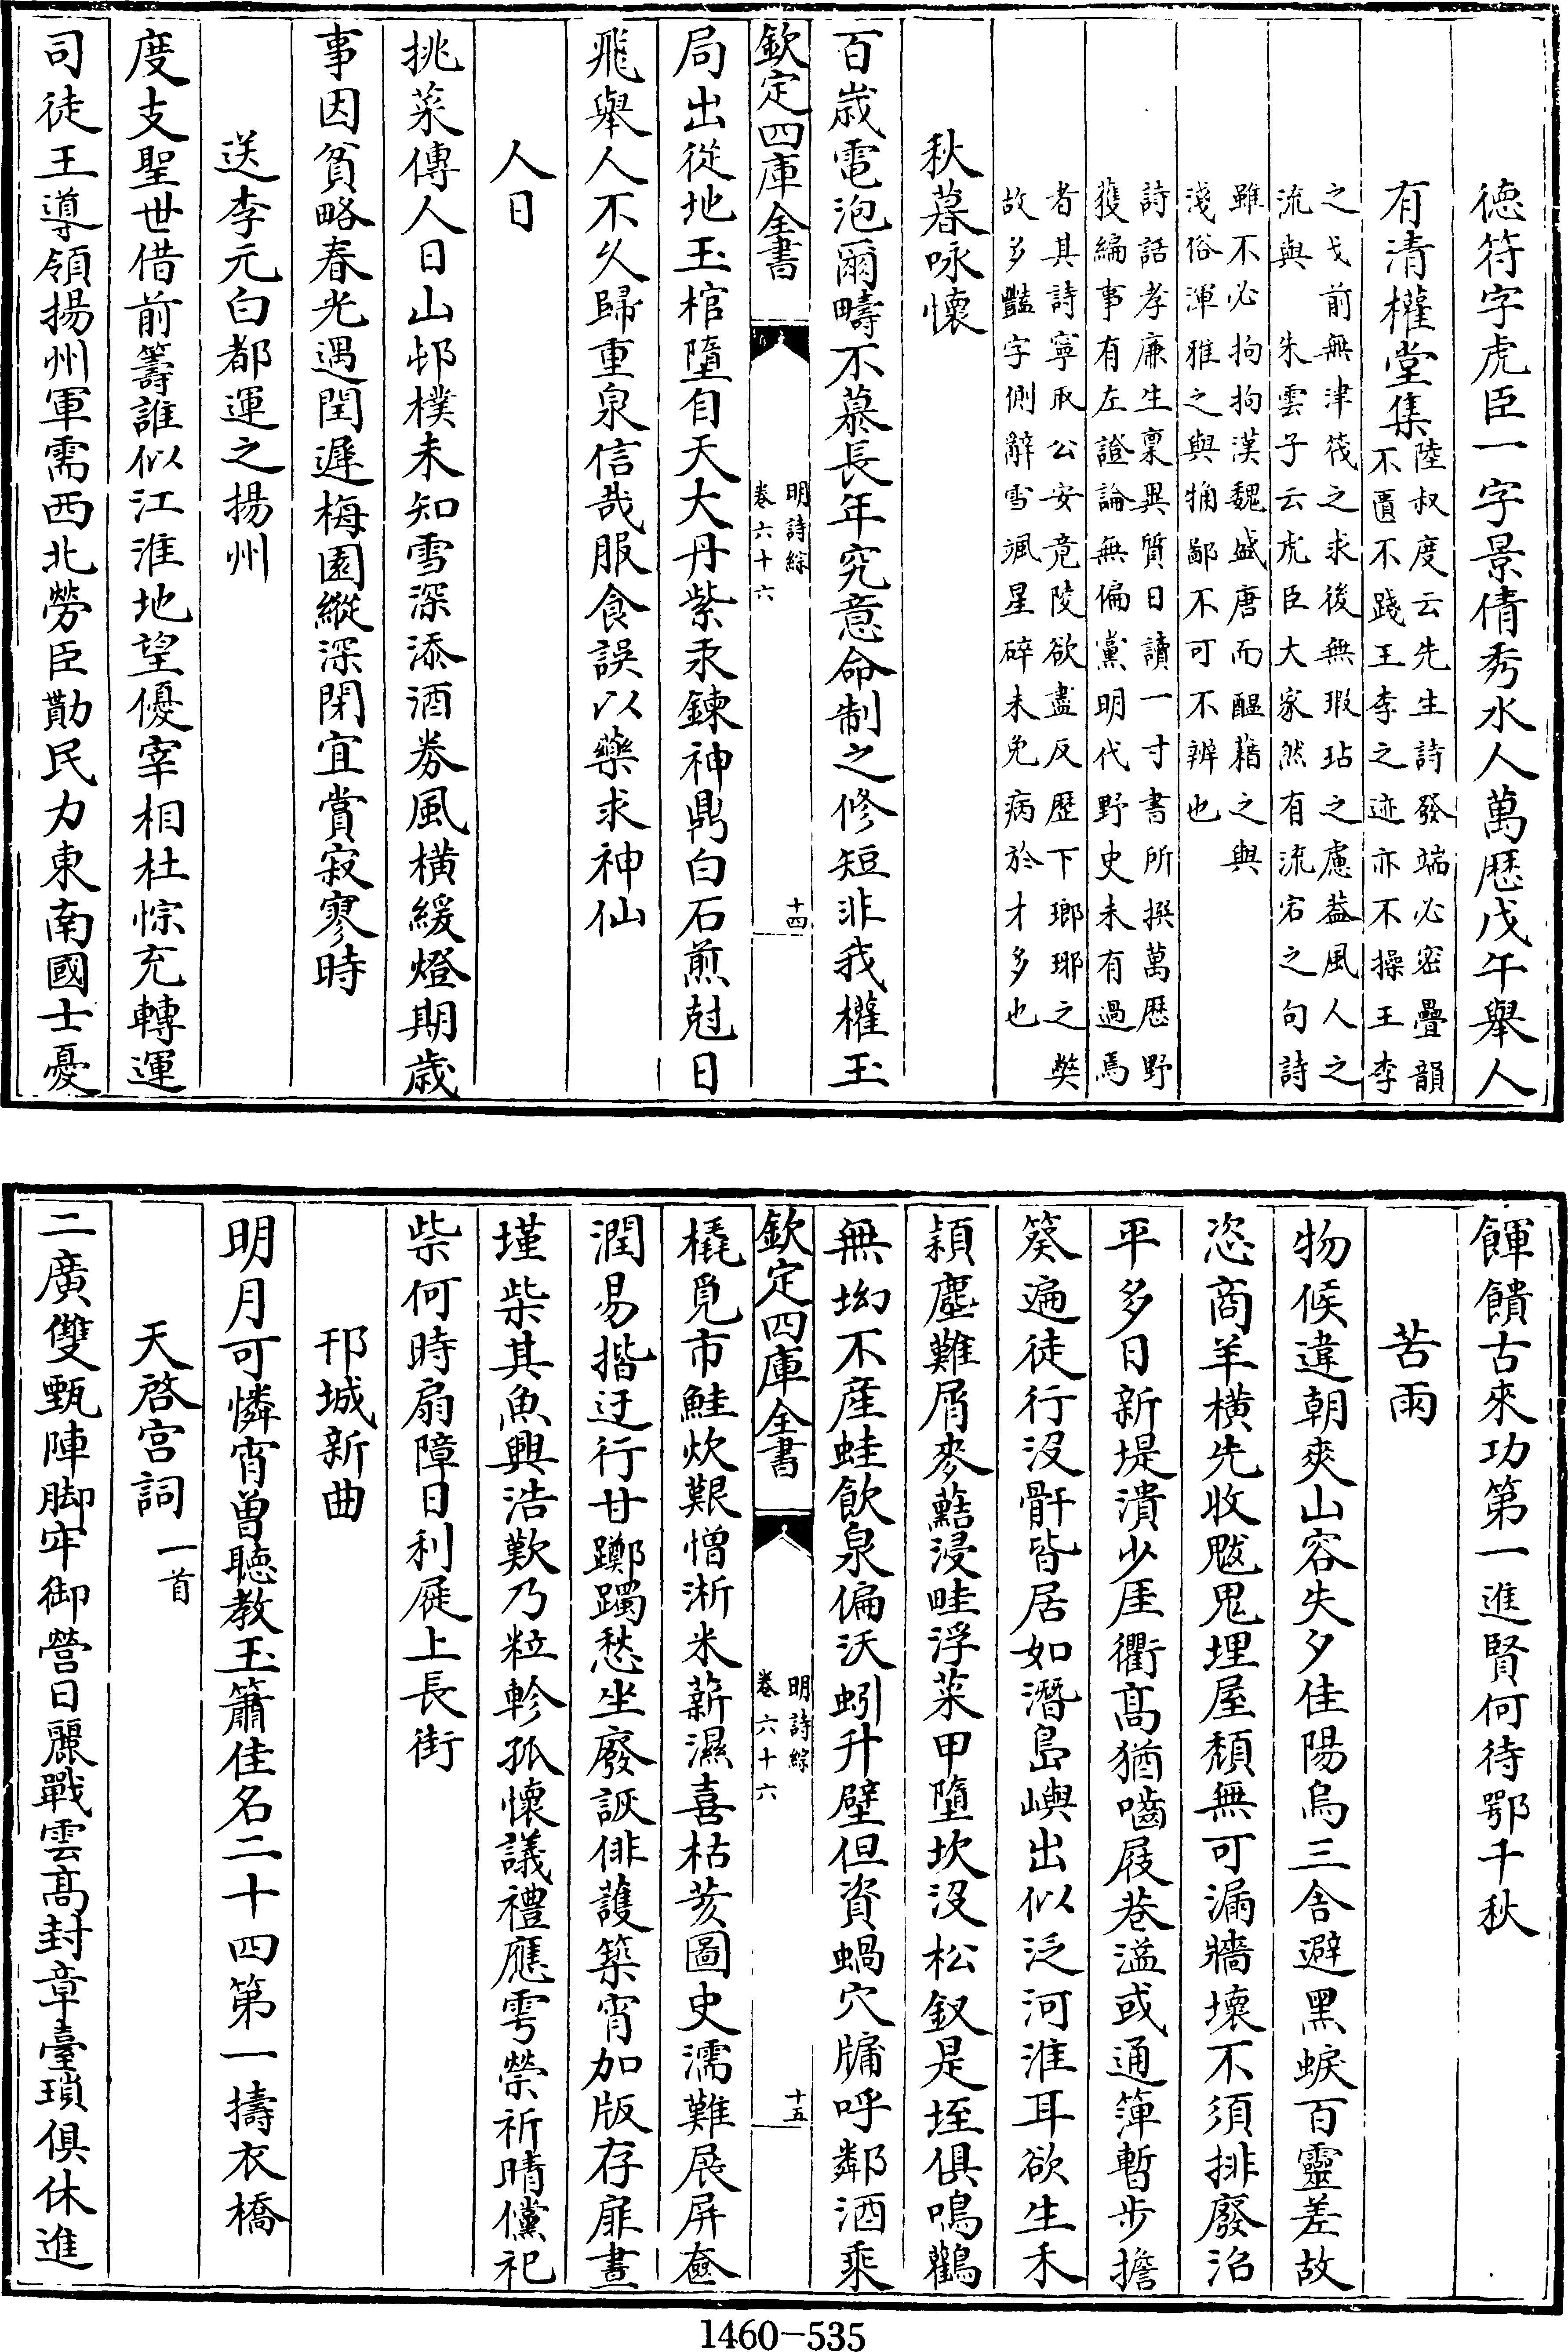 德符字虎臣一字景倩秀水人萬厯戊午舉人
有清權堂集陸叔度云先生詩發端必密疊韻
不匱不踐王李之迹亦不操王李
之戈前無津筏之求後無瑕玷之慮葢風人之
流與 朱雲子云虎臣大家然有流宕之句詩
雖不必拘拘漢魏盛唐而醖藉之與
淺俗渾雅之與觕鄙不可不辨也
詩話孝廉生稟異質日讀一寸書所撰萬厯野
獲編事有左證論無偏黨明代野史未有過焉
者其詩寧取公安竟陵欲盡反歴下瑯琊之獘
故多豔字側辭雪颯星碎未免病於才多也
秋暮咏懷
百歳電泡爾疇不慕長年究意命制之修短非我權玉
欽定四庫全書
明詩綜
卷六十六
十四
局出從地玉棺墮自天大丹紫汞鍊神鼎白石煎尅日
飛舉人不久歸重泉信哉服食誤以藥求神仙
人日
挑菜傳人日山邨樸未知雪深添酒劵風橫緩燈期歳
事因貧略春光遇閏遲梅園縱深閉宜賞寂寥時
送李元白都運之揚州
度支聖世借前籌誰似江淮地望優宰相杜悰充轉運
司徒王導領揚州軍需西北勞臣勩民力東南國士憂
餫饋古來功第一進賢何待鄂千秋
苦雨
物候違朝爽山容失夕佳陽烏三舍避黑蜧百靈差故
恣商羊橫先收魃鬼埋屋頹無可漏牆壞不須排廢沿
平多日新堤潰少厓衢髙猶嚙屐巷溢或通簰暫步擔
簦遍徒行没骭皆居如潛島嶼出似泛河淮耳欲生禾
穎塵難屑麥䕸浸畦浮菜甲墮坎没松釵是垤俱鳴鸛
無坳不産蛙飲泉偏沃蚓升壁但資蝸穴牖呼鄰酒乘
欽定四庫全書
明詩綜
卷六十六
十五
橇覓市鮭炊艱憎淅米薪濕喜枯荄圖史濡難展屏奩
潤易揩迂行甘躑躅愁坐廢詼俳䕶築宵加版存扉晝
墐柴其魚興浩歎乃粒軫孤懷議禮應雩禜祈晴儻祀
柴何時扇障日利屣上長街
邗城新曲
明月可憐宵曽聴教玉簫佳名二十四第一擣衣橋
天啓宫詞一首
二廣雙甄陣脚牢御營日麗戰雲髙封章臺瑣俱休進
1460－535